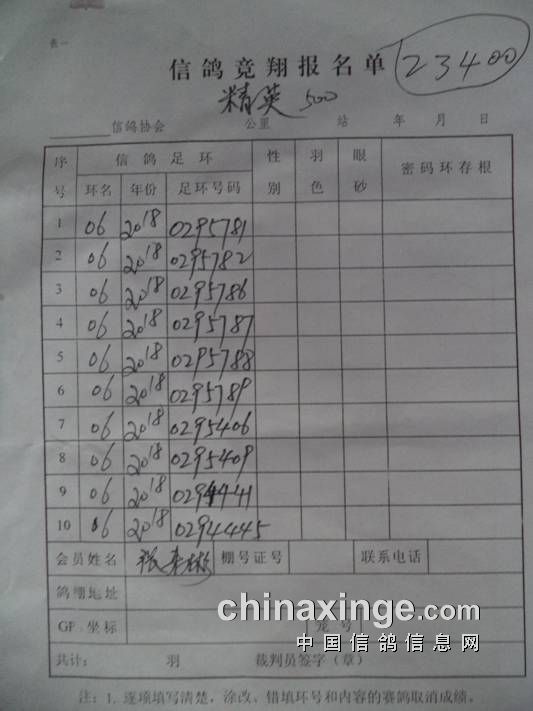 表一
信鸽竞翔报名单
23400
精英 500
信鸽协会 公里 站 年 月 日
序号 信鸽足环 性别 羽色 眼砂 密码环存根
环名 年份 足环号码
1 06 2018 0295781
2 06 2018 0295782
3 06 2018 0295786
4 06 2018 0295787
5 06 2018 0295788
6 06 2018 0295789
7 06 2018 0295406
8 06 2018 0295409
9 06 2018 0294441
10 06 2018 0294445
会员姓名 张 棚号证号 联系电话
鸽棚地址
GP 坐标 笼号
共计: 羽 裁判员签字(章)
注:1. 逐项填写清楚,涂改、错填环号和内容的赛鸽取消成绩。
chinaxinge.com
中国信鸽信息网